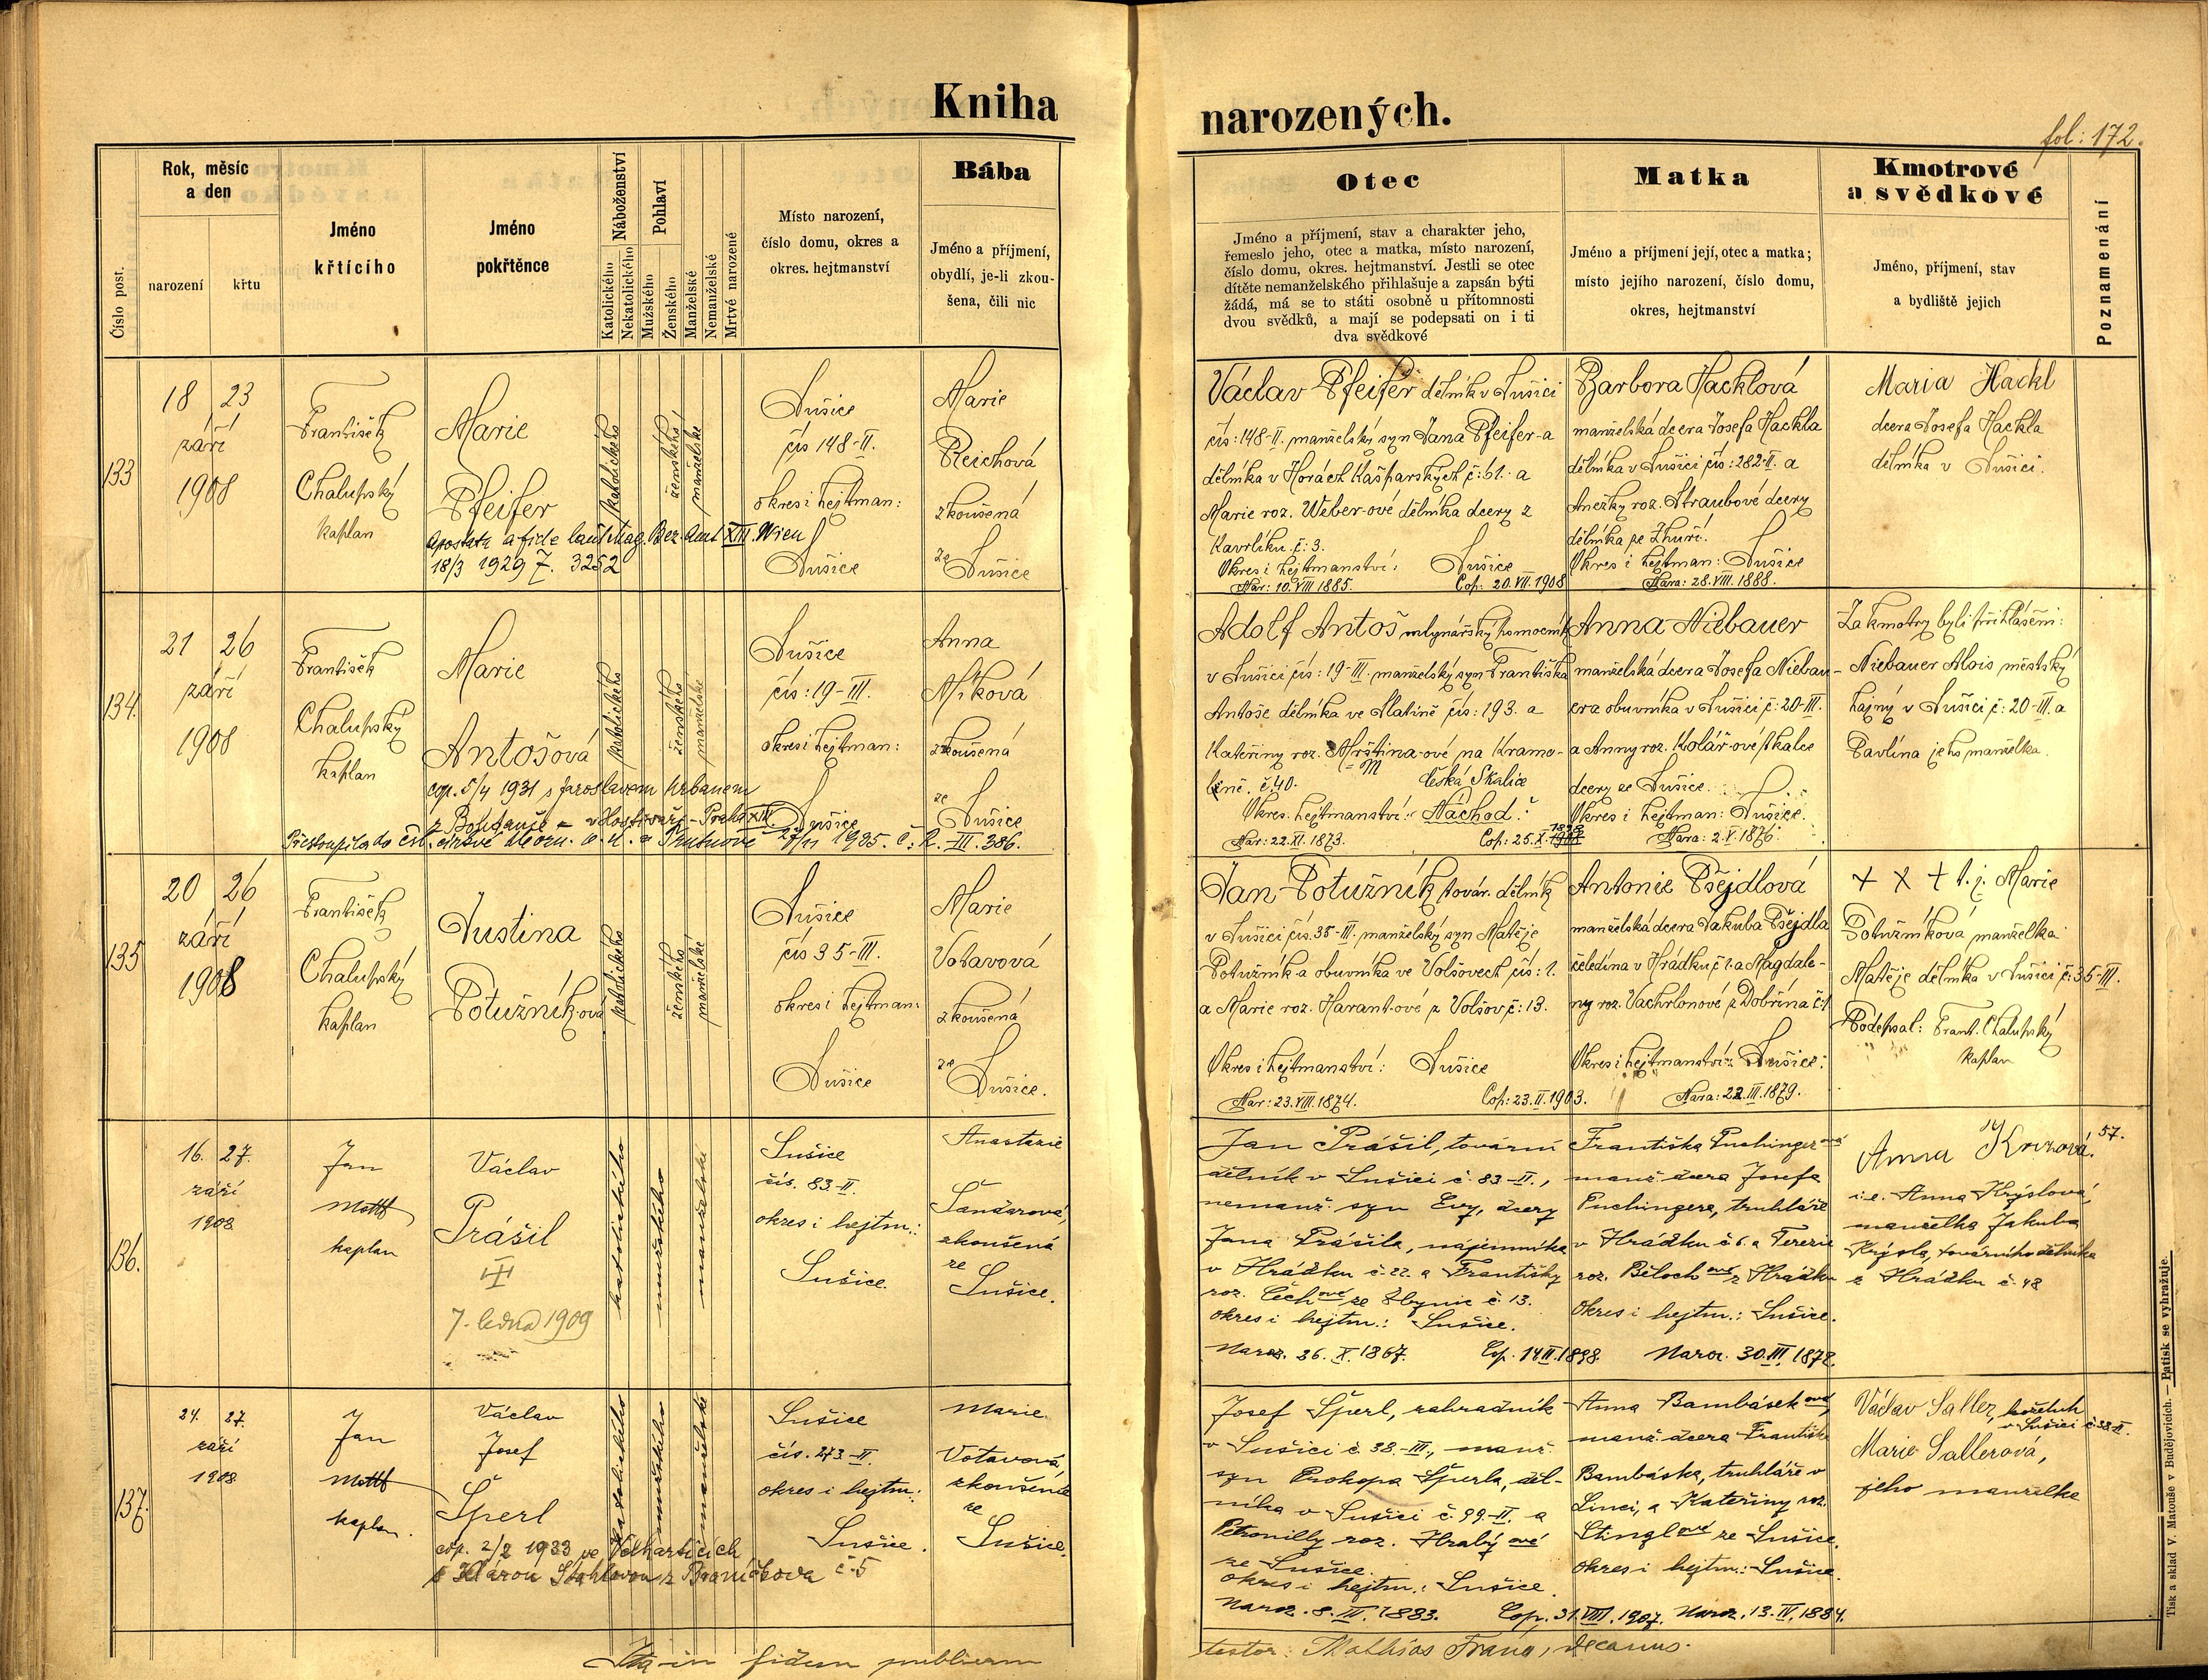 Kniha narozených.
fol: 172.
Číslo post.
Rok, měsíc
a den
narození
křtu
Jméno
křtícího
Jméno
pokřtěnce
Náboženství
Katolického
Nekatolického
Pohlaví
Mužského
Ženského
Manželské
Nemanželské
Mrtvé narozené
Místo narození,
číslo domu, okres a
okres. hejtmanství
Bába
Jméno a příjmení,
obydlí, je-li zkou-
šena, čili nic
Otec
Jméno a příjmení, stav a charakter jeho,
řemeslo jeho, otec a matka, místo narození,
číslo domu, okres. hejtmanství. Jestli se otec
dítěte nemanželského přihlašuje a zapsán býti
žádá, má se to státi osobně u přítomnosti
dvou svědků, a mají se podepsati on i ti
dva svědkové
Matka
Jméno a příjmení její, otec a matka;
místo jejího narození, číslo domu,
okres, hejtmanství
Kmotrové
a svědkové
Jméno, příjmení, stav
a bydliště jejich
Poznamenání
133
18 23
září
1908
František
Chalupský
kaplan
Marie
Pfeifer
apostata a fide laut Mag. Bez. Amt XIII. Wien
18/3 1929 Z. 3252
katolického
ženského
manželské
Sušice
čís 148-II.
okres i hejtman:
Sušice
Marie
Reichová
zkoušená
ze Sušice
Václav Pfeifer dělník v Sušici
čís: 148-II. manželský syn Jana Pfeifer-a
dělníka v Horách Kašparských č: 61. a
Marie roz. Weber-ové dělníka dcery z
Kavrlíku č: 3.
Okres i hejtmanství: Sušice
Nar: 10. VIII 1885. Cop: 20. VII. 1908
Barbora Hacklová
manželská dcera Josefa Hackla
dělníka v Sušici čís: 282-II. a
Anežky roz. Straubové dcery
dělníka ze Zhuří.
Okres i hejtman: Sušice
Nara: 28. VIII. 1888.
Maria Hackl
dcera Josefa Hackla
dělníka v Sušici.
134.
21 26
září
1908
František
Chalupský
kaplan
Marie
Antošová
cop. 5/4 1931 s Jaroslavem Urbanem
z Bohdanče v Hostivaři - Praha XIII.
Přestoupila do čsl. církve 27/11 1935. č: R. III. 386.
katolického
ženského
manželské
Sušice
čís: 19-III.
okres i hejtman:
Sušice
Anna
Míková
zkoušená
ze Sušice
Adolf Antoš mlynářský pomocník
v Sušici čís: 19-III. manželský syn Františka
Antoše dělníka ve Slatině čís: 193. a
Kateřiny roz. Mrština-ové na Kramo-
lině. č. 40. Česká Skalice
Okres. hejtmanství: Náchod.
Nar: 22. XI. 1873. Cop: 25. X. 1898
Anna Niebauer
manželská dcera Josefa Niebau-
era obuvníka v Sušici č: 20-III.
a Anny roz. Kolář-ové
dcery ze Sušice.
Okres i hejtman: Sušice.
Nara: 2. V. 1876.
Za kmotry byli přihlášeni:
Niebauer Alois městský
hajný v Sušici č: 20-III. a
Pavlína jeho manželka.
135
20 26
září
1908
František
Chalupský
kaplan
Justina
Potužníková
katolického
ženského
manželské
Sušice
čís 35-III.
okres i hejtman:
Sušice
Marie
Votavová
zkoušená
ze Sušice.
Jan Potužník továr. dělník
v Sušici čís. 35-III. manželský syn Matěje
Potužník-a obuvníka ve Volšovech čís: 1.
a Marie roz. Harant-ové z Volšov č: 13.
Okres i hejtmanství: Sušice
Nar: 23. VIII. 1874. Cop: 23. II. 1903.
Antonie Pšejdlová
manželská dcera Jakuba Pšejdla
čeledína v Hrádku č 1. a Magdale-
ny roz. Vachrlonové z Dobřína č: 1
Okres i hejtmanství: Sušice.
Nara: 22. III. 1879.
+ + + t. j. Marie
Potužníková manželka
Matěje dělníka v Sušici č: 35-III.
Podepsal: Frant. Chalupský
kaplan
136.
16. 27.
září
1908
Jan
Mottl
kaplan
Václav
Prášil
7. ledna 1909
katolického
mužského
manželské
Sušice
čís. 83-II.
okres i hejtm.:
Sušice.
Anastazie
Šandarová,
zkoušená
ze
Sušice.
Jan Prášil, tovární
dělník v Sušici č. 83-II.,
nemanž. syn Evy, dcery
Jana Prášila, nájemníka
v Hrádku č. 22. a Františky
roz. Čechové ze Zbynic č. 13.
okres i hejtm.: Sušice.
Naroz. 26. X. 1867. Cop. 14 II. 1898.
Františka Puchingerová
manž. dcera Josefa
Puchingera, truhláře
v Hrádku č. 6. a Terezie
roz. Bělochové z Hrádku
okres i hejtm.: Sušice.
Naroz. 30. III. 1872.
57.
Anna
i. e. Anna Krýslová,
manželka Jakuba
Krýsla, továrního dělníka
z Hrádku č. 48
137.
24. 27.
září
1908
Jan
Mottl
kaplan.
Václav
Josef
Šperl
cop. 2/2 1933 ve Velharticích
s Klárou Stahlovou z Braníčkova č. 5
katolického
mužského
manželské
Sušice
čís. 273-II.
okres i hejtm.:
Sušice.
Marie
Votavová,
zkoušená
ze
Sušice.
Josef Šperl, zahradník
v Sušici č. 38.-III., manž.
syn Prokopa Šperla, děl-
níka v Sušici č. 99-II. a
Petronilly roz. Hrabýové
ze Sušice.
okres i hejtm.: Sušice.
Naroz. 8. III. 1883. Cop. 31. VIII. 1907.
Anna Bambásková,
manž. dcera Františka
Bambáska, truhláře v
Linci, a Kateřiny roz.
Stinglové ze Sušice.
okres i hejtm.: Sušice.
Naroz. 13. IV. 1884.
Václav Saller, koželuh
v Sušici č. 38-II.
Marie Sallerová,
jeho manželka
Ita in fidem publicam
testor: Mathias Franá, decanus.
Tisk a sklad V. Matouše v Budějovicích. — Patisk se vyhražuje.